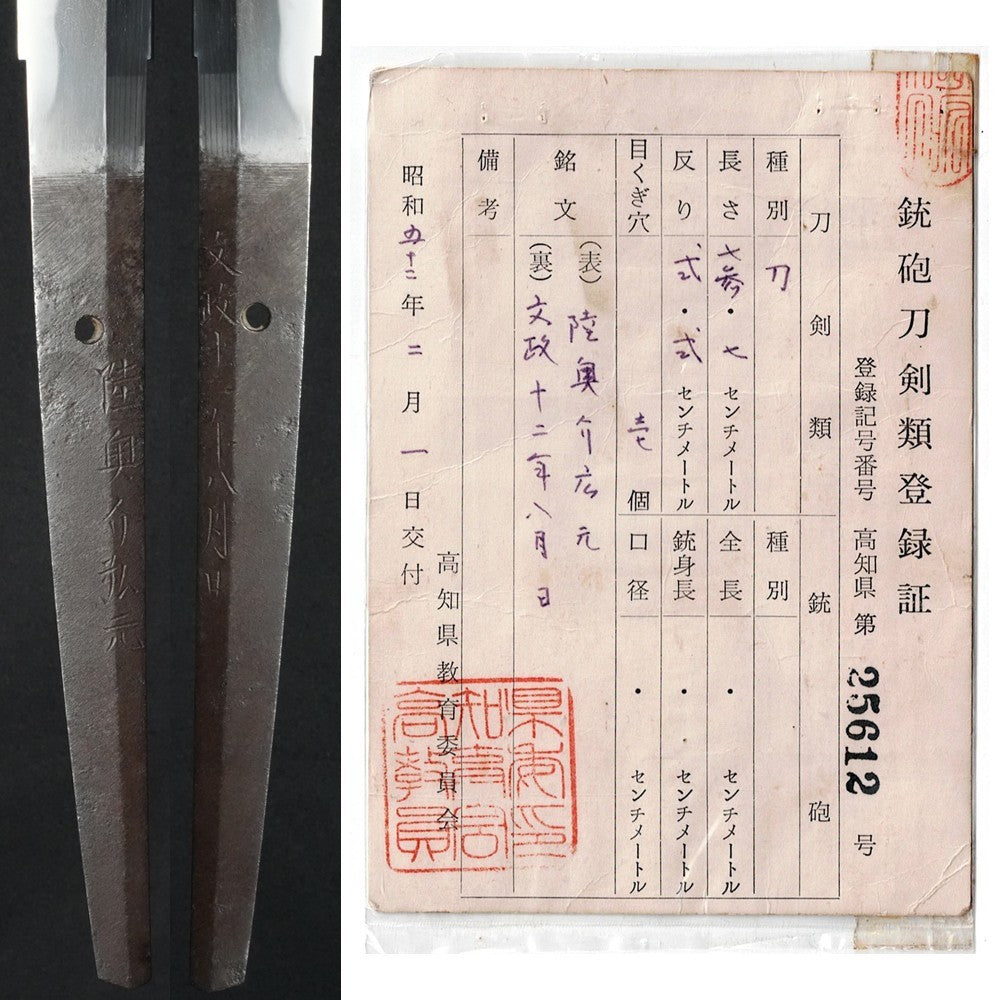 陸奥介弘元
文政十二年八月日
銃砲刀剣類登録証
登録記号番号 高知県 第 25612 号
刀剣類 銃砲
種別 刀 種別
長さ 七参・七 センチメートル 全長 ・ センチメートル
反り 弐・弐 センチメートル 銃身長 ・ センチメートル
目くぎ穴 壱 個 口径 ・ センチメートル
銘文 (表) 陸奥介広元
(裏) 文政十二年八月日
備考
昭和五十二年二月一日交付
高知県教育委員会